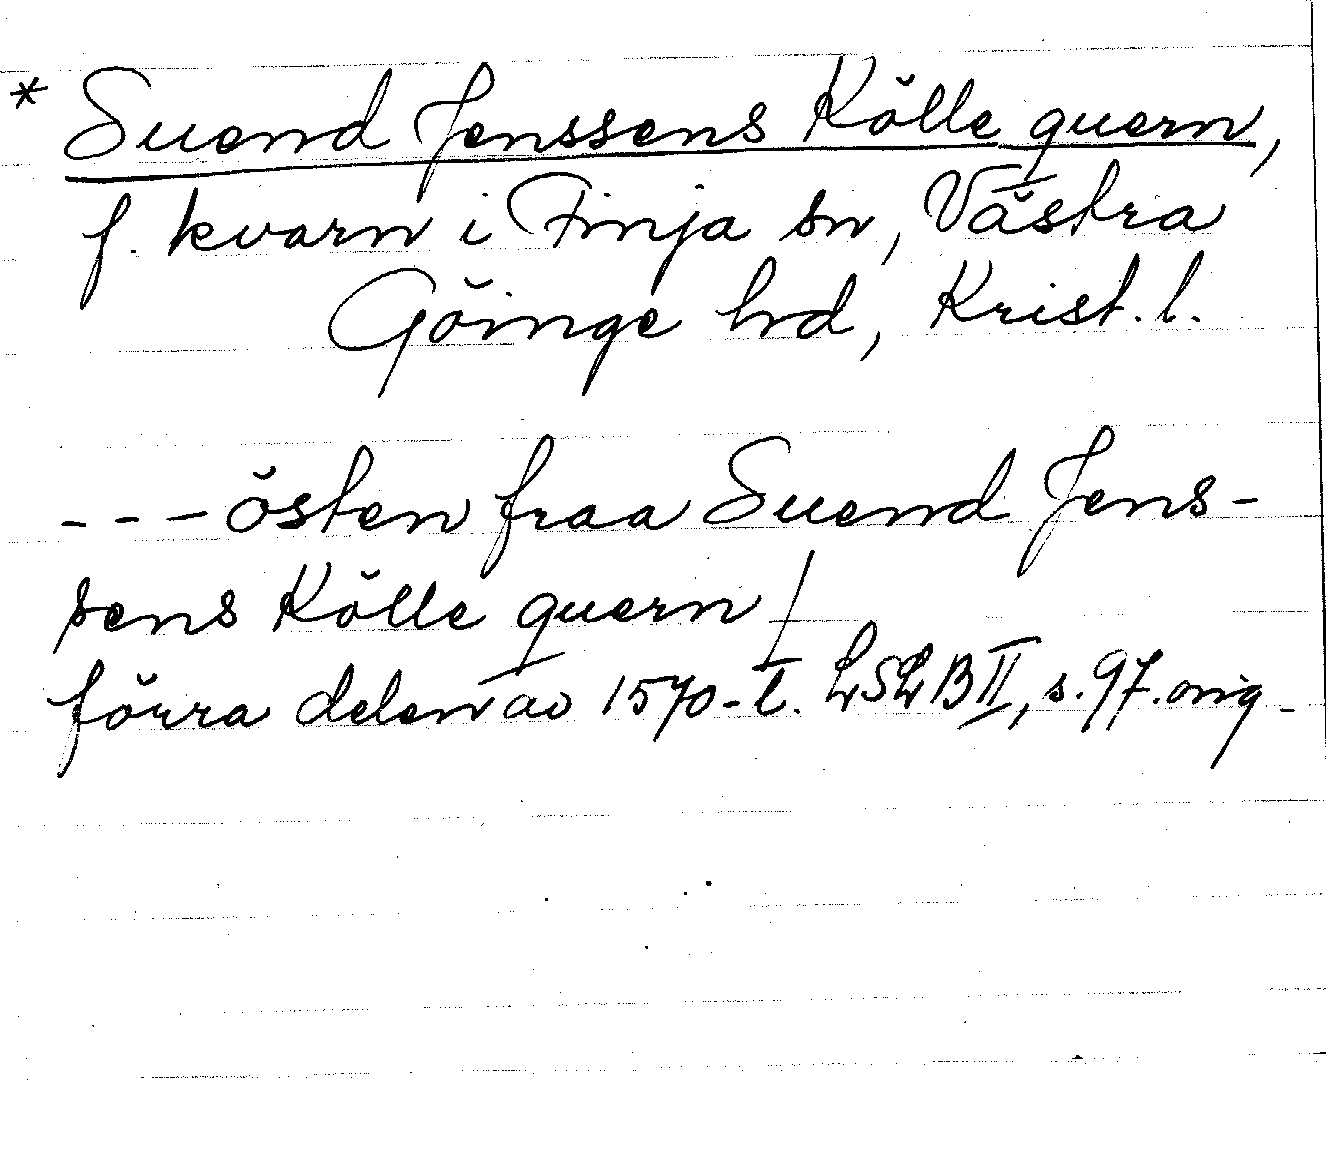 * Suend Jenssens Kölle quern,
f. kvarn i Finja sn, Västra
Göinge hd, Krist. l.
--- östen fraa Suend Jens-
sens Kölle quern /
förra delen av 1570-t. LSLB II, s. 97. orig.